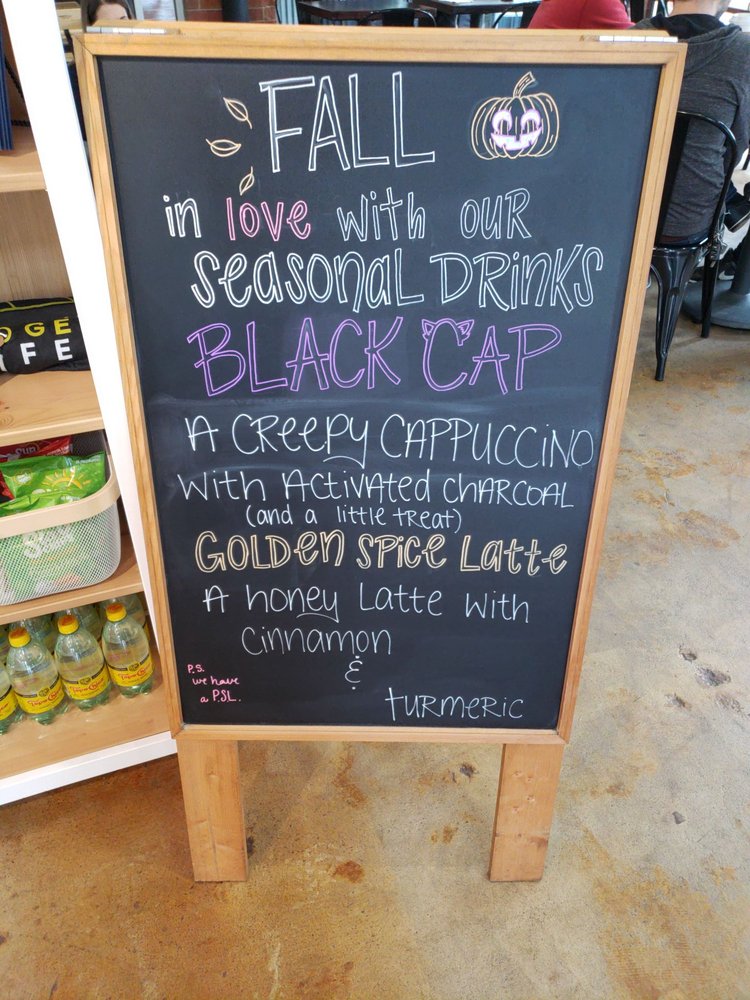 FALL
in love with our
Seasonal Drinks
BLACK CAP
A CREEPY CAPPUCCINO
with Activated Charcoal
(and a little treat)
Golden Spice Latte
A honey Latte with
cinnamon
&
turmeric
P.S.
we have
a P.S.L.
Topo Chico